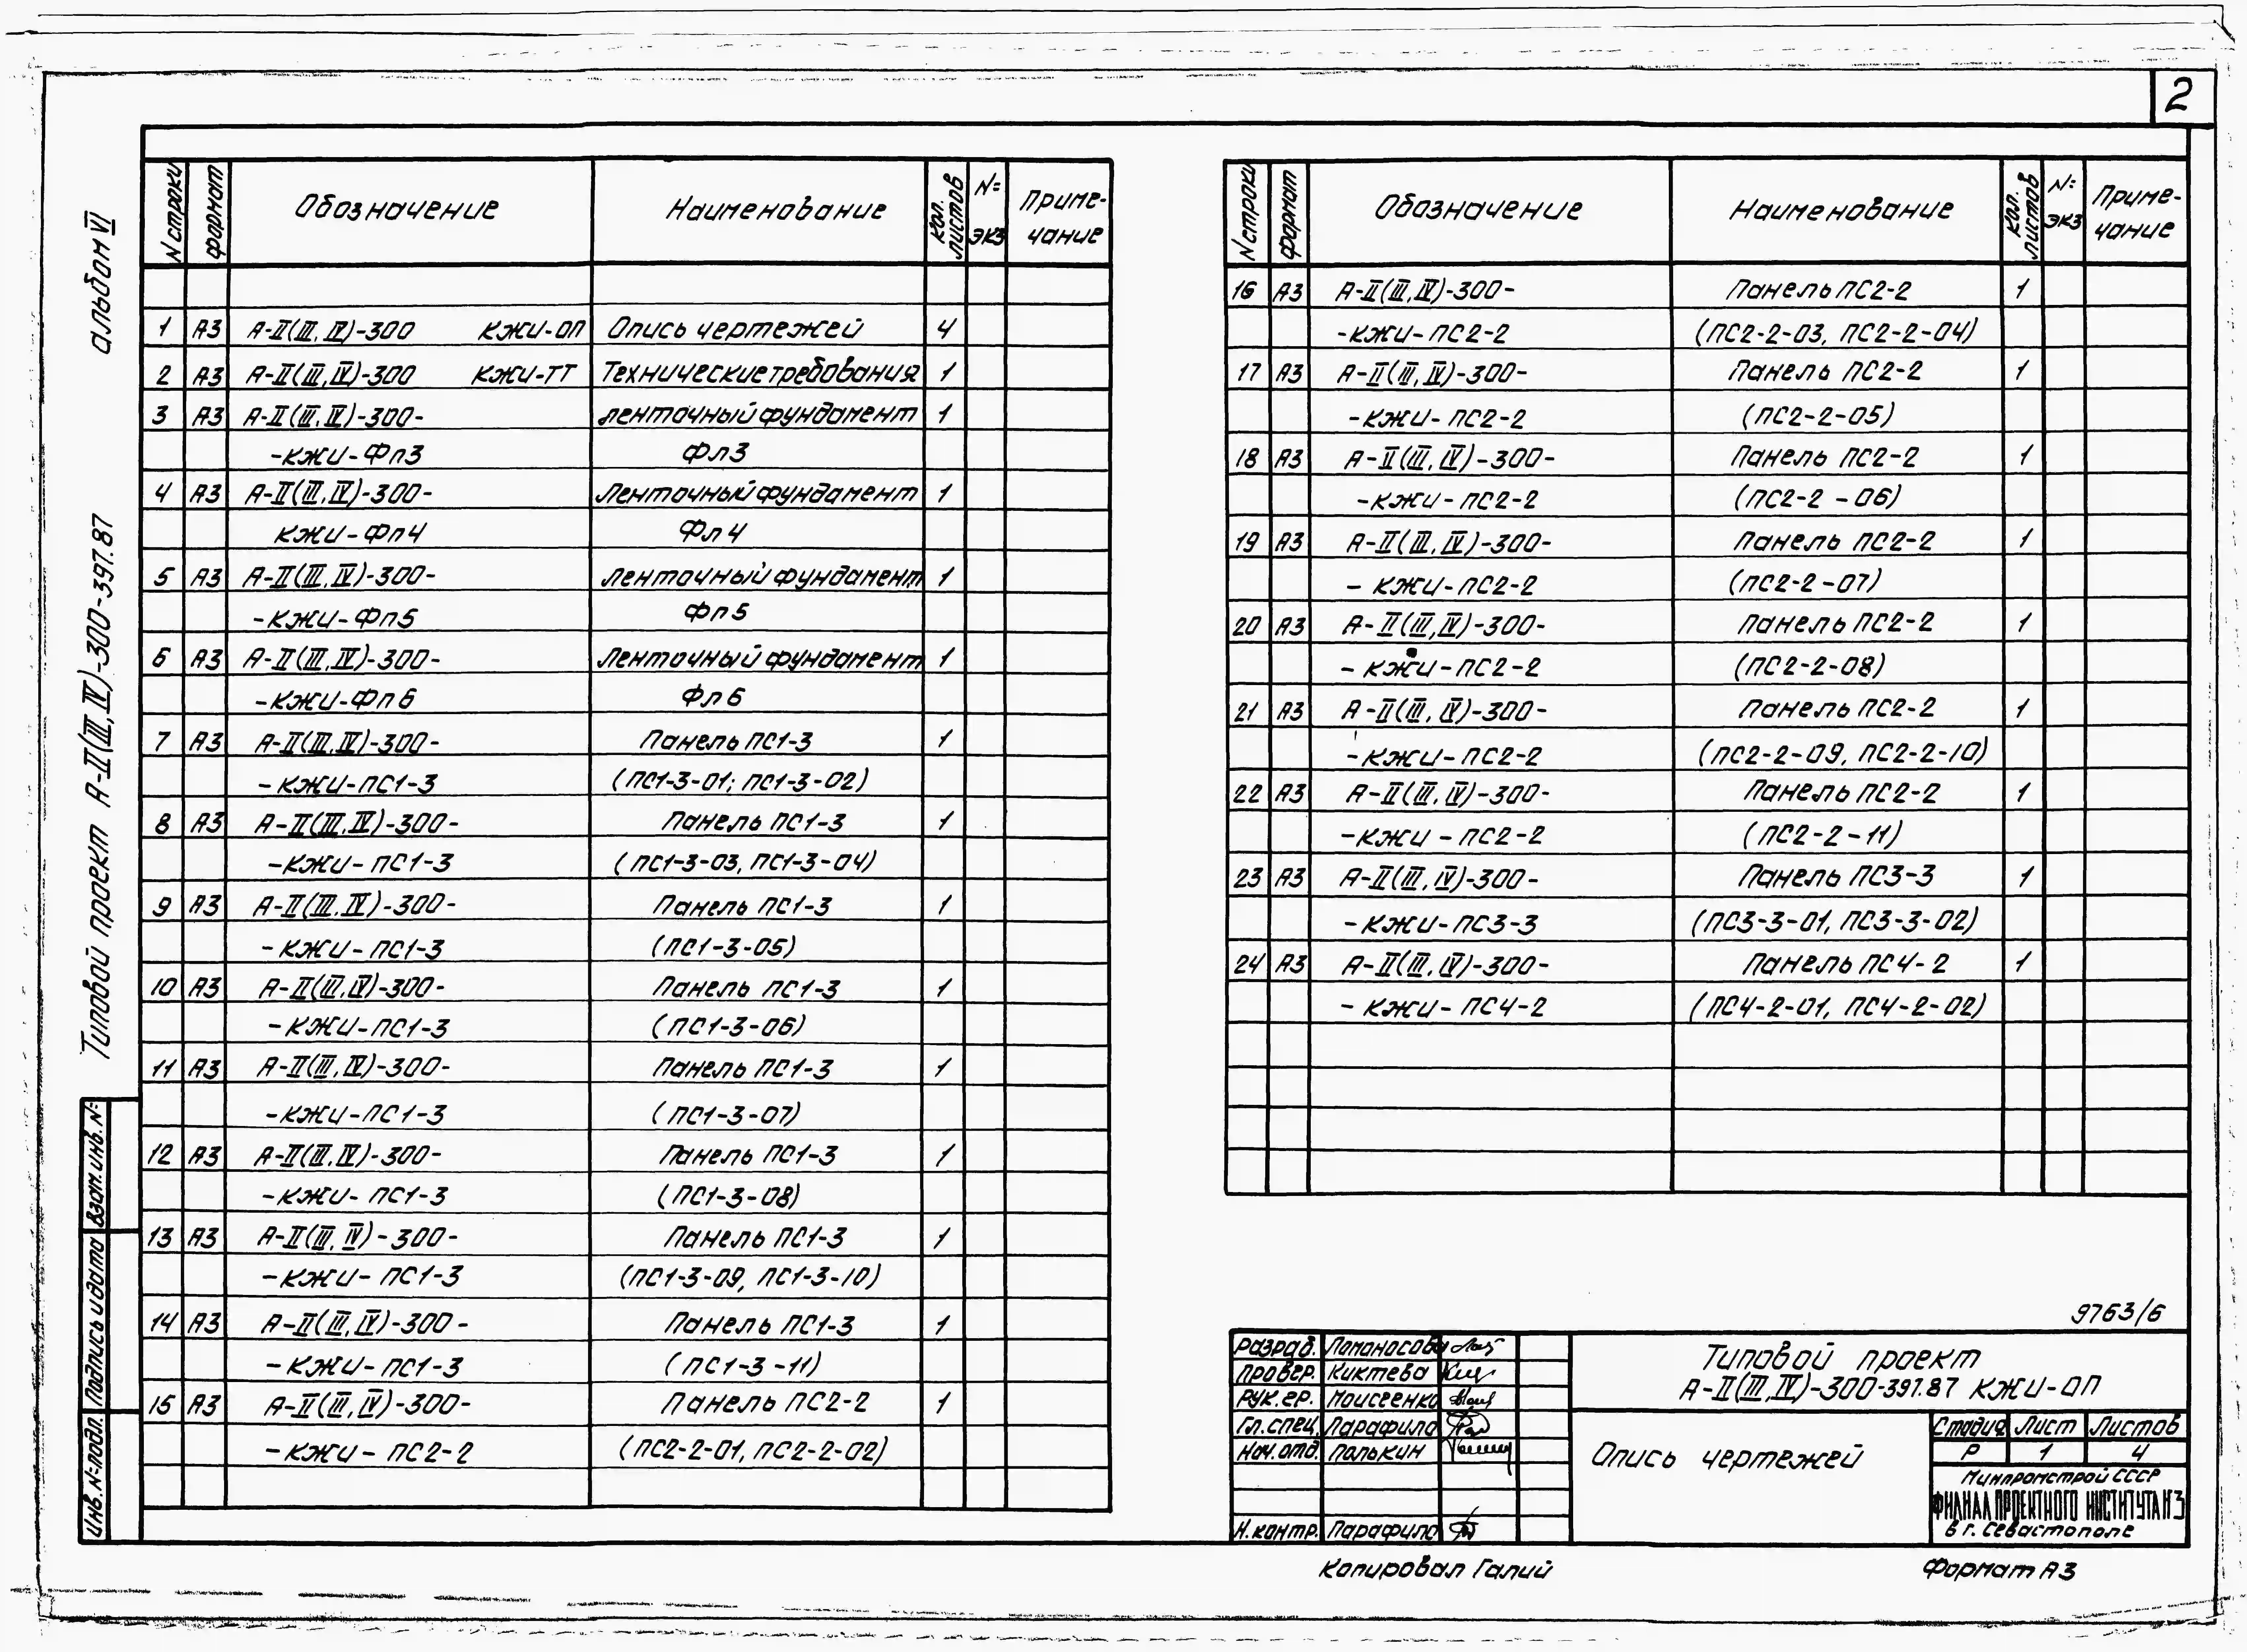 2
альбом VI
Типовой проект А-II(III,IV)-300-397.87
Взам.инв.N=
Подпись и дата
Инв.N=подл.
N строки формат Обозначение Наименование кол. листов N= экз Приме-чание
1 А3 А-II(III,IV)-300 КЖИ-ОП Опись чертежей 4
2 А3 А-II(III,IV)-300 КЖИ-ТТ Технические требования 1
3 А3 А-II(III,IV)-300- ленточный фундамент 1
-КЖИ-Фл3 Фл3
4 А3 А-II(III,IV)-300- Ленточный фундамент 1
КЖИ-Фл4 Фл4
5 А3 А-II(III,IV)-300- ленточный фундамент 1
-КЖИ-Фл5 Фл5
6 А3 А-II(III,IV)-300- Ленточный фундамент 1
-КЖИ-Фл6 Фл6
7 А3 А-II(III,IV)-300- Панель ПС1-3 1
-КЖИ-ПС1-3 (ПС1-3-01; ПС1-3-02)
8 А3 А-II(III,IV)-300- Панель ПС1-3 1
-КЖИ-ПС1-3 (ПС1-3-03, ПС1-3-04)
9 А3 А-II(III,IV)-300- Панель ПС1-3 1
-КЖИ-ПС1-3 (ПС1-3-05)
10 А3 А-II(III,IV)-300- Панель ПС1-3 1
-КЖИ-ПС1-3 (ПС1-3-06)
11 А3 А-II(III,IV)-300- Панель ПС1-3 1
-КЖИ-ПС1-3 (ПС1-3-07)
12 А3 А-II(III,IV)-300- Панель ПС1-3 1
-КЖИ-ПС1-3 (ПС1-3-08)
13 А3 А-II(III,IV)-300- Панель ПС1-3 1
-КЖИ-ПС1-3 (ПС1-3-09, ПС1-3-10)
14 А3 А-II(III,IV)-300- Панель ПС1-3 1
-КЖИ-ПС1-3 (ПС1-3-11)
15 А3 А-II(III,IV)-300- Панель ПС2-2 1
-КЖИ-ПС2-2 (ПС2-2-01, ПС2-2-02)
N строки формат Обозначение Наименование кол. листов N= экз Приме-чание
16 А3 А-II(III,IV)-300- Панель ПС2-2 1
-КЖИ-ПС2-2 (ПС2-2-03, ПС2-2-04)
17 А3 А-II(III,IV)-300- Панель ПС2-2 1
-КЖИ-ПС2-2 (ПС2-2-05)
18 А3 А-II(III,IV)-300- Панель ПС2-2 1
-КЖИ-ПС2-2 (ПС2-2-06)
19 А3 А-II(III,IV)-300- Панель ПС2-2 1
-КЖИ-ПС2-2 (ПС2-2-07)
20 А3 А-II(III,IV)-300- Панель ПС2-2 1
-КЖИ-ПС2-2 (ПС2-2-08)
21 А3 А-II(III,IV)-300- Панель ПС2-2 1
-КЖИ-ПС2-2 (ПС2-2-09, ПС2-2-10)
22 А3 А-II(III,IV)-300- Панель ПС2-2 1
-КЖИ-ПС2-2 (ПС2-2-11)
23 А3 А-II(III,IV)-300- Панель ПС3-3 1
-КЖИ-ПС3-3 (ПС3-3-01, ПС3-3-02)
24 А3 А-II(III,IV)-300- Панель ПС4-2 1
-КЖИ-ПС4-2 (ПС4-2-01, ПС4-2-02)
9763/6
Разраб. Ломоносова
Провер. Киктева
Рук.гр. Моисеенко
Гл.спец. Парафило
Нач.отд. Полькин
Н.контр. Парафило
Типовой проект
А-II(III,IV)-300-397.87 КЖИ-ОП
Опись чертежей
Стадия Лист Листов
Р 1 4
Минпромстрой СССР
ФИЛИАЛ ПРОЕКТНОГО ИНСТИТУТА N3
в г. Севастополе
Копировал Галий
Формат А3